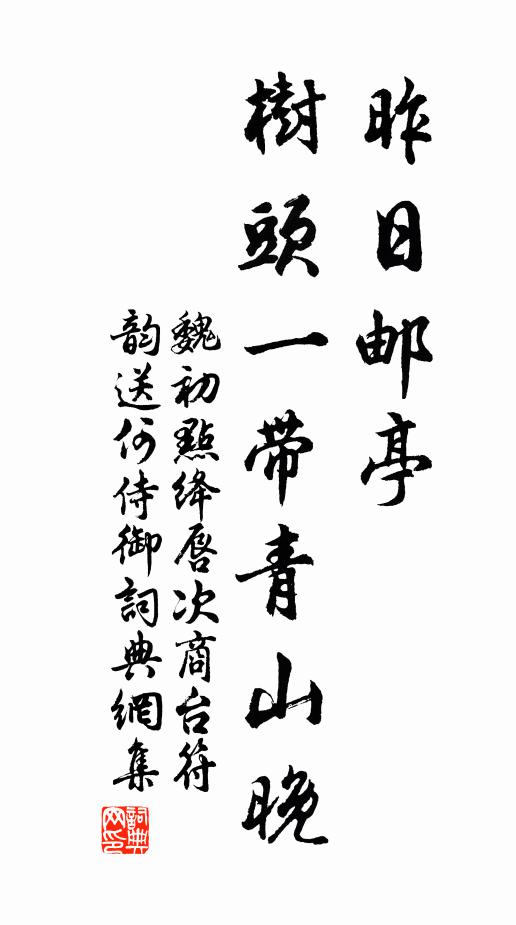 昨日邮亭
樹頭一带青山晚
魏初點绛唇次商台符
韵送何侍御詞典網集
詞典
网印